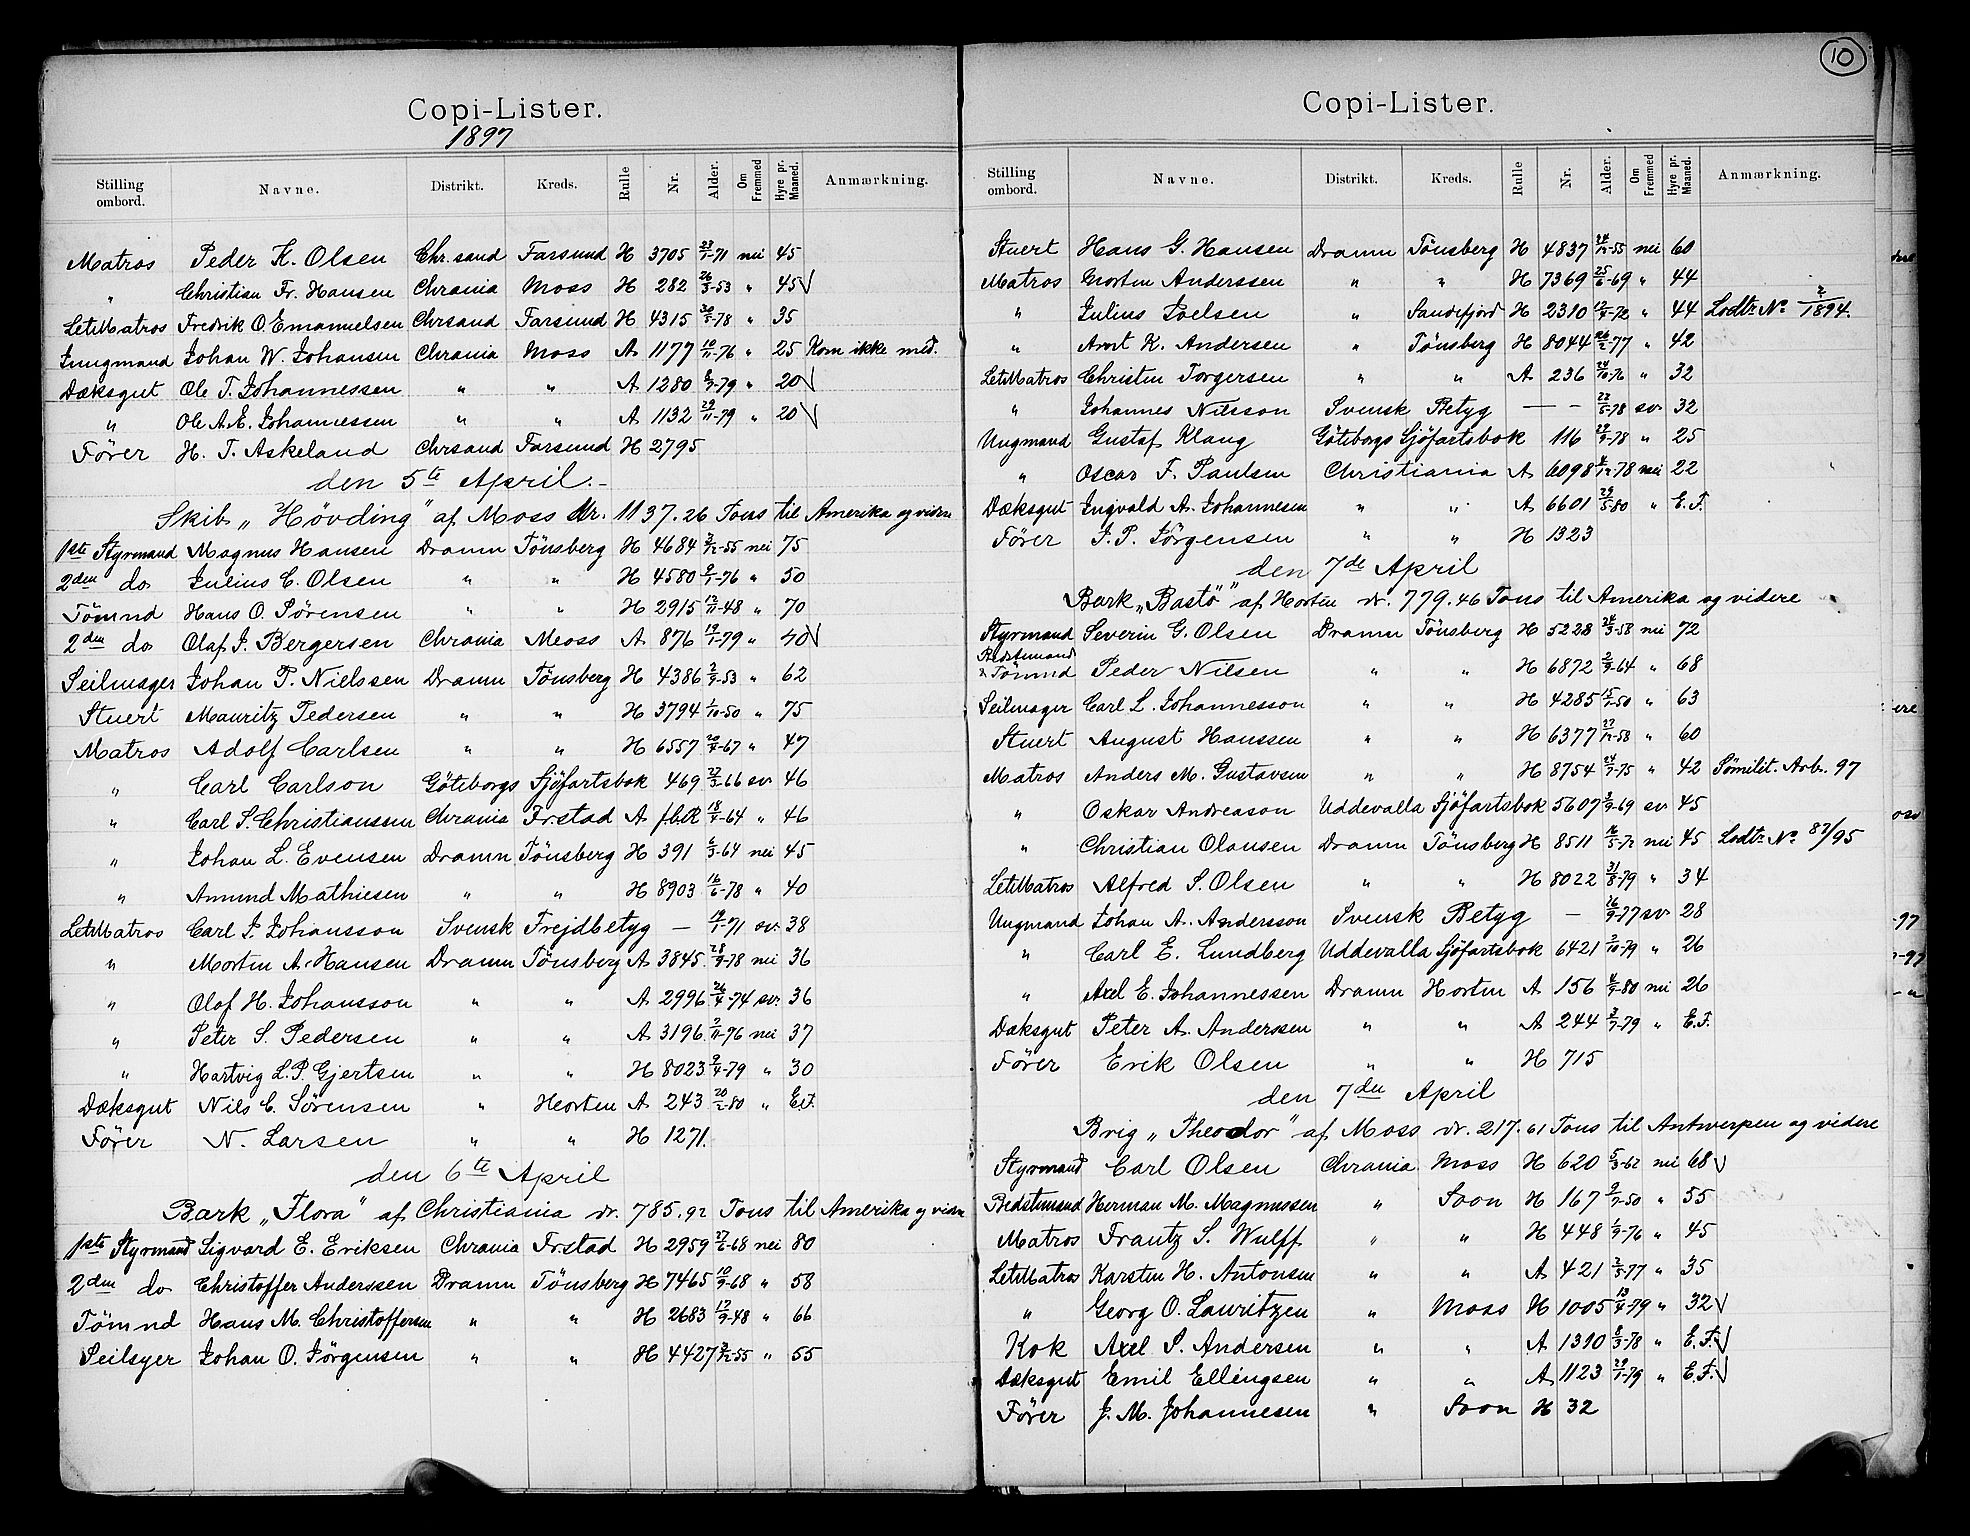 10
Copi-Lister.
1897
Stilling ombord. Navne. Distrikt. Kreds. Rulle Nr. Alder. Om Fremmed Hyre pr. Maaned. Anmærkning.
Matros Peder K. Olsen Chr.sand Farsund H 3705 23/1-71 nei 45
" Christian Fr. Hansen Chrania Moss H 282 26/3-53 " 45 √
LetMatros Fredrik O. Emanuelsen Chrsand Farsund H 4315 30/5-78 " 35
Jungmand Johan W. Johansen Chrania Moss A 1177 10/11-76 " 25 Kom ikke med.
Dæksgut Ole T. Johannessen " " A 1280 8/3-79 " 20 √
" Ole A. E. Johannessen " " A 1132 29/11-79 " 20 √
Fører H. T. Askeland Chrsand Farsund H 2795
den 5te April.-
Skib „Høvding" af Moss dr. 1137.26 Tons til Amerika og videre
1ste Styrmand Magnus Hansen Dramn Tönsberg H 4684 3/12-55 nei 75
2den do Julius C. Olsen " " H 4580 9/1-76 " 50
Tömnd Hans O. Sörensen " " H 2915 12/11-48 " 70
2den do Olaf J. Bergersen Chrania Moss A 876 19/1-79 " 40 √
Seilmager Johan P. Nielssen Dramn Tönsberg H 4386 2/9-53 " 62
Stuert Mauritz Pedersen " " H 3794 1/10-50 " 75
Matros Adolf Carlsen " " H 6557 20/4-67 " 47
" Carl Carlson Göteborgs Sjöfartsbok 469 22/3-66 sv 46
" Carl S. Christianssen Chrania Frstad A f.b.R 18/4-64 " 46
" Johan L. Evensen Dramn Tönsberg H 391 6/3-64 nei 45
" Amund Mathiesen " " H 8903 16/6-78 " 40
LetMatros Carl J. Johansson Svensk Frejdbetyg — 14/1-71 sv. 38
" Morten A. Hansen Dramn Tönsberg A 3845 28/9-78 nei 36
" Olof H. Johansson " " A 2996 26/4-74 sv. 36
" Peter S. Pedersen " " A 3196 7/11-76 nei 37
" Hartvig L. P. Gjertsen " " H 8023 9/4-79 " 30
Dæksgut Nils C. Sörensen " Horten A 243 20/2-80 " E.F.
Fører N. Larsen " " H 1271.
den 6te April
Bark „Flora" af Christiania dr. 785.92 Tons til Amerika og videre
1ste Styrmand Sigvard E. Eriksen Chrania Frstad H 2959 27/6-68 nei 80
2den do Christoffer Anderssen Dramn Tönsberg H 7465 10/9-68 " 58
Tömnd Hans M. Christoffersen " " H 2683 12/9-48 " 66
Seilsyer Johan O. Jörgensen " " H 4427 3/12-55 " 55
Copi-Lister.
Stilling ombord. Navne. Distrikt. Kreds. Rulle Nr. Alder. Om Fremmed Hyre pr. Maaned. Anmærkning.
Stuert Hans G. Hansen Dramn Tönsberg H 4837 24/12-55 nei 60
Matros Morten Anderssen " " H 7369 25/6-69 " 44
" Julius Joelsen " Sandefjord H 2310 12/4-72 " 44 Lodtr No 2/1894.
" Arnt K. Andersen " Tönsberg H 8044 26/2-77 " 42
LetMatros Christen Torgersen " " A 236 24/10-76 " 32
" Johannes Nilsson Svensk Betyg — - 22/5-78 sv. 32
Ungmand Gustaf Klang Göteborgs Sjöfartsbok 116 29/9-78 " 25
" Oscar F. Paulsen Christiania A 6098 4/12-78 nei 22
Dæksgut Ingvald A. Johannesen " " A 6601 29/5-80 " E.F.
Fører J. P. Jörgensen " " H 1323
den 7de April
Bark „Bastö" af Horten dr. 779.46 Tons til Amerika og videre
Styrmand Severin G. Olsen Dramn Tönsberg H 5228 24/3-58 nei 72
Bedstemand & Tömnd Peder Nilsen " " H 6872 2/9-64 " 68
Seilmager Carl L. Johannesson " " H 4285 15/7-50 " 63
Stuert August Hanssen " " H 6377 27/12-58 " 60
Matros Anders M. Gustavsen " " H 8754 24/7-75 " 42 Sömilit. Arb. 97
" Oskar Andreason Uddevalla Sjöfartsbok 5607 3/9-69 sv 45
" Christian Olausen Dramn Tönsberg H 8511 16/5-72 nei 45 Lodtr No 87/95
LetMatros Alfred S. Olsen " " H 8022 31/8-79 " 34
Ungmand Johan A. Andersson Svensk Betyg — 26/9-77 sv. 28
" Carl E. Lundberg Uddevalla Sjöfartsbok 6421 2/10-79 " 26
" Axel E. Johannessen Dramn Horten A 156 4/9-80 nei 26
Dæksgut Peter A. Anderssen " " A 244 3/7-79 " E.F.
Fører Erik Olsen " " H 715
den 7den April
Brig „Theodor" af Moss dr. 217.61 Tons til Antwerpen og videre
Styrmand Carl Olsen Chrania Moss H 620 5/3-62 nei 68 √
Bedstemand Herman M. Magnussen " Soon H 167 9/7-50 " 55
Matros Frantz S. Wulff " " H 448 1/9-76 " 45
LetMatros Karsten H. Antonsen " " A 421 2/5-77 " 35
" Georg O. Lauritzen " Moss H 1005 13/4-79 " 32 √
Kok Axel S. Andersen " " A 1310 8/3-78 " E.F. √
Dæksgut Emil Ellingsen " " A 1123 29/1-79 " E.F. √
Fører J. M. Johannesen " Soon H 32